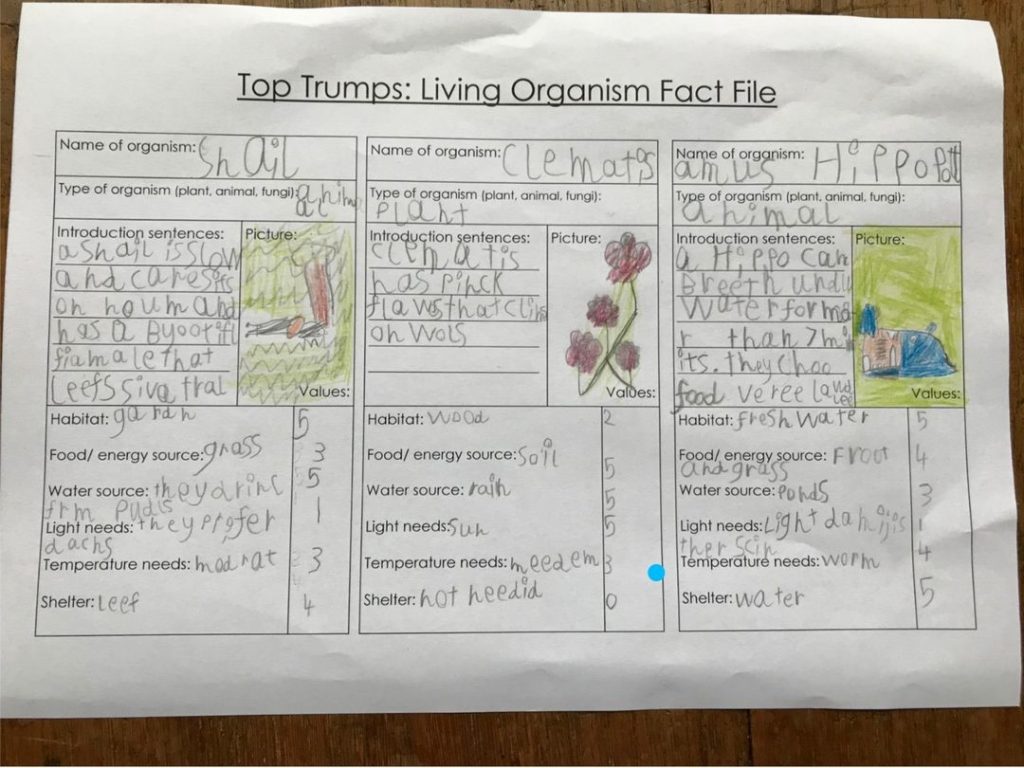 Top Trumps: Living Organism Fact File
Name of organism: Snail
Type of organism (plant, animal, fungi): anim
al
Introduction sentences:
a snail is slow
and
on houm and
has a byootifl
that
Leefs
Picture:
Values:
Habitat: gardn 5
Food/ energy source: grass 3
Water source: they drinc 5
frm pudls
Light needs: they prefer 1
dacns
Temperature needs: modrat 3
Shelter: Leef 4
Name of organism: Clematis
Type of organism (plant, animal, fungi):
Plant
Introduction sentences:
clematis
has pinck
flaws that clim
on wols
Picture:
Values:
Habitat: wood 2
Food/ energy source: Soil 5
Water source: rain 5
Light needs: Sun 5
Temperature needs: meedem 3
Shelter: not needid 0
Name of organism: Hippopot
amus
Type of organism (plant, animal, fungi):
animal
Introduction sentences:
a Hippo can
Breeth undu
water for mo
r than 7 min
its. they choo
food veree
Picture:
Values:
Habitat: fresh water 5
Food/ energy source: Froot 4
and grass
Water source: ponds 3
Light needs: Light damijis 1
ther scin
Temperature needs: worm 4
Shelter: water 5